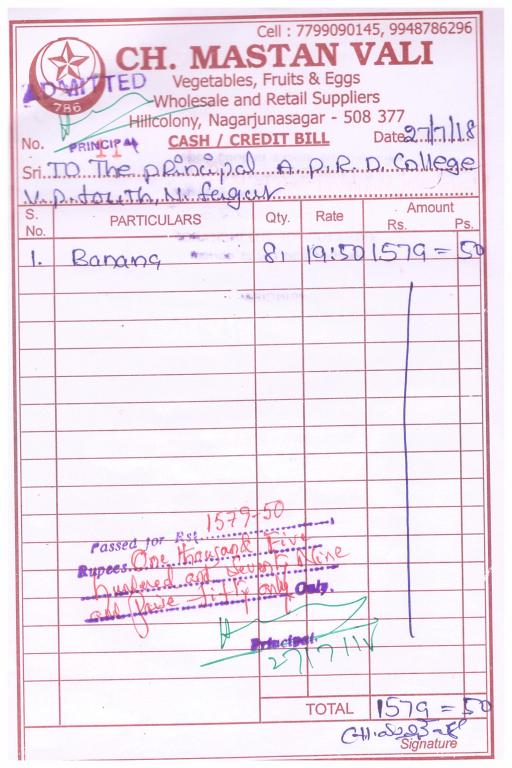 Cell : 7799090145, 9948786296
CH. MASTAN VALI
ADMITTED
786
Vegetables, Fruits & Eggs
Wholesale and Retail Suppliers
Hillcolony, Nagarjunasagar - 508 377
No. 11 PRINCIPAL CASH / CREDIT BILL Date 27/7/18
Sri. TO The principal A.P.R.D. College
V.p. South, N.
S. No. PARTICULARS Qty. Rate Amount Rs. Ps.
1. Banana 81 19:50 1579 = 50
Passed for Rs. 1579-50
Rupees One thousand Five
hundered and Seventy Nine
and Paise fifty only Only.
Principal.
27/7/18
TOTAL 1579 = 50
Signature